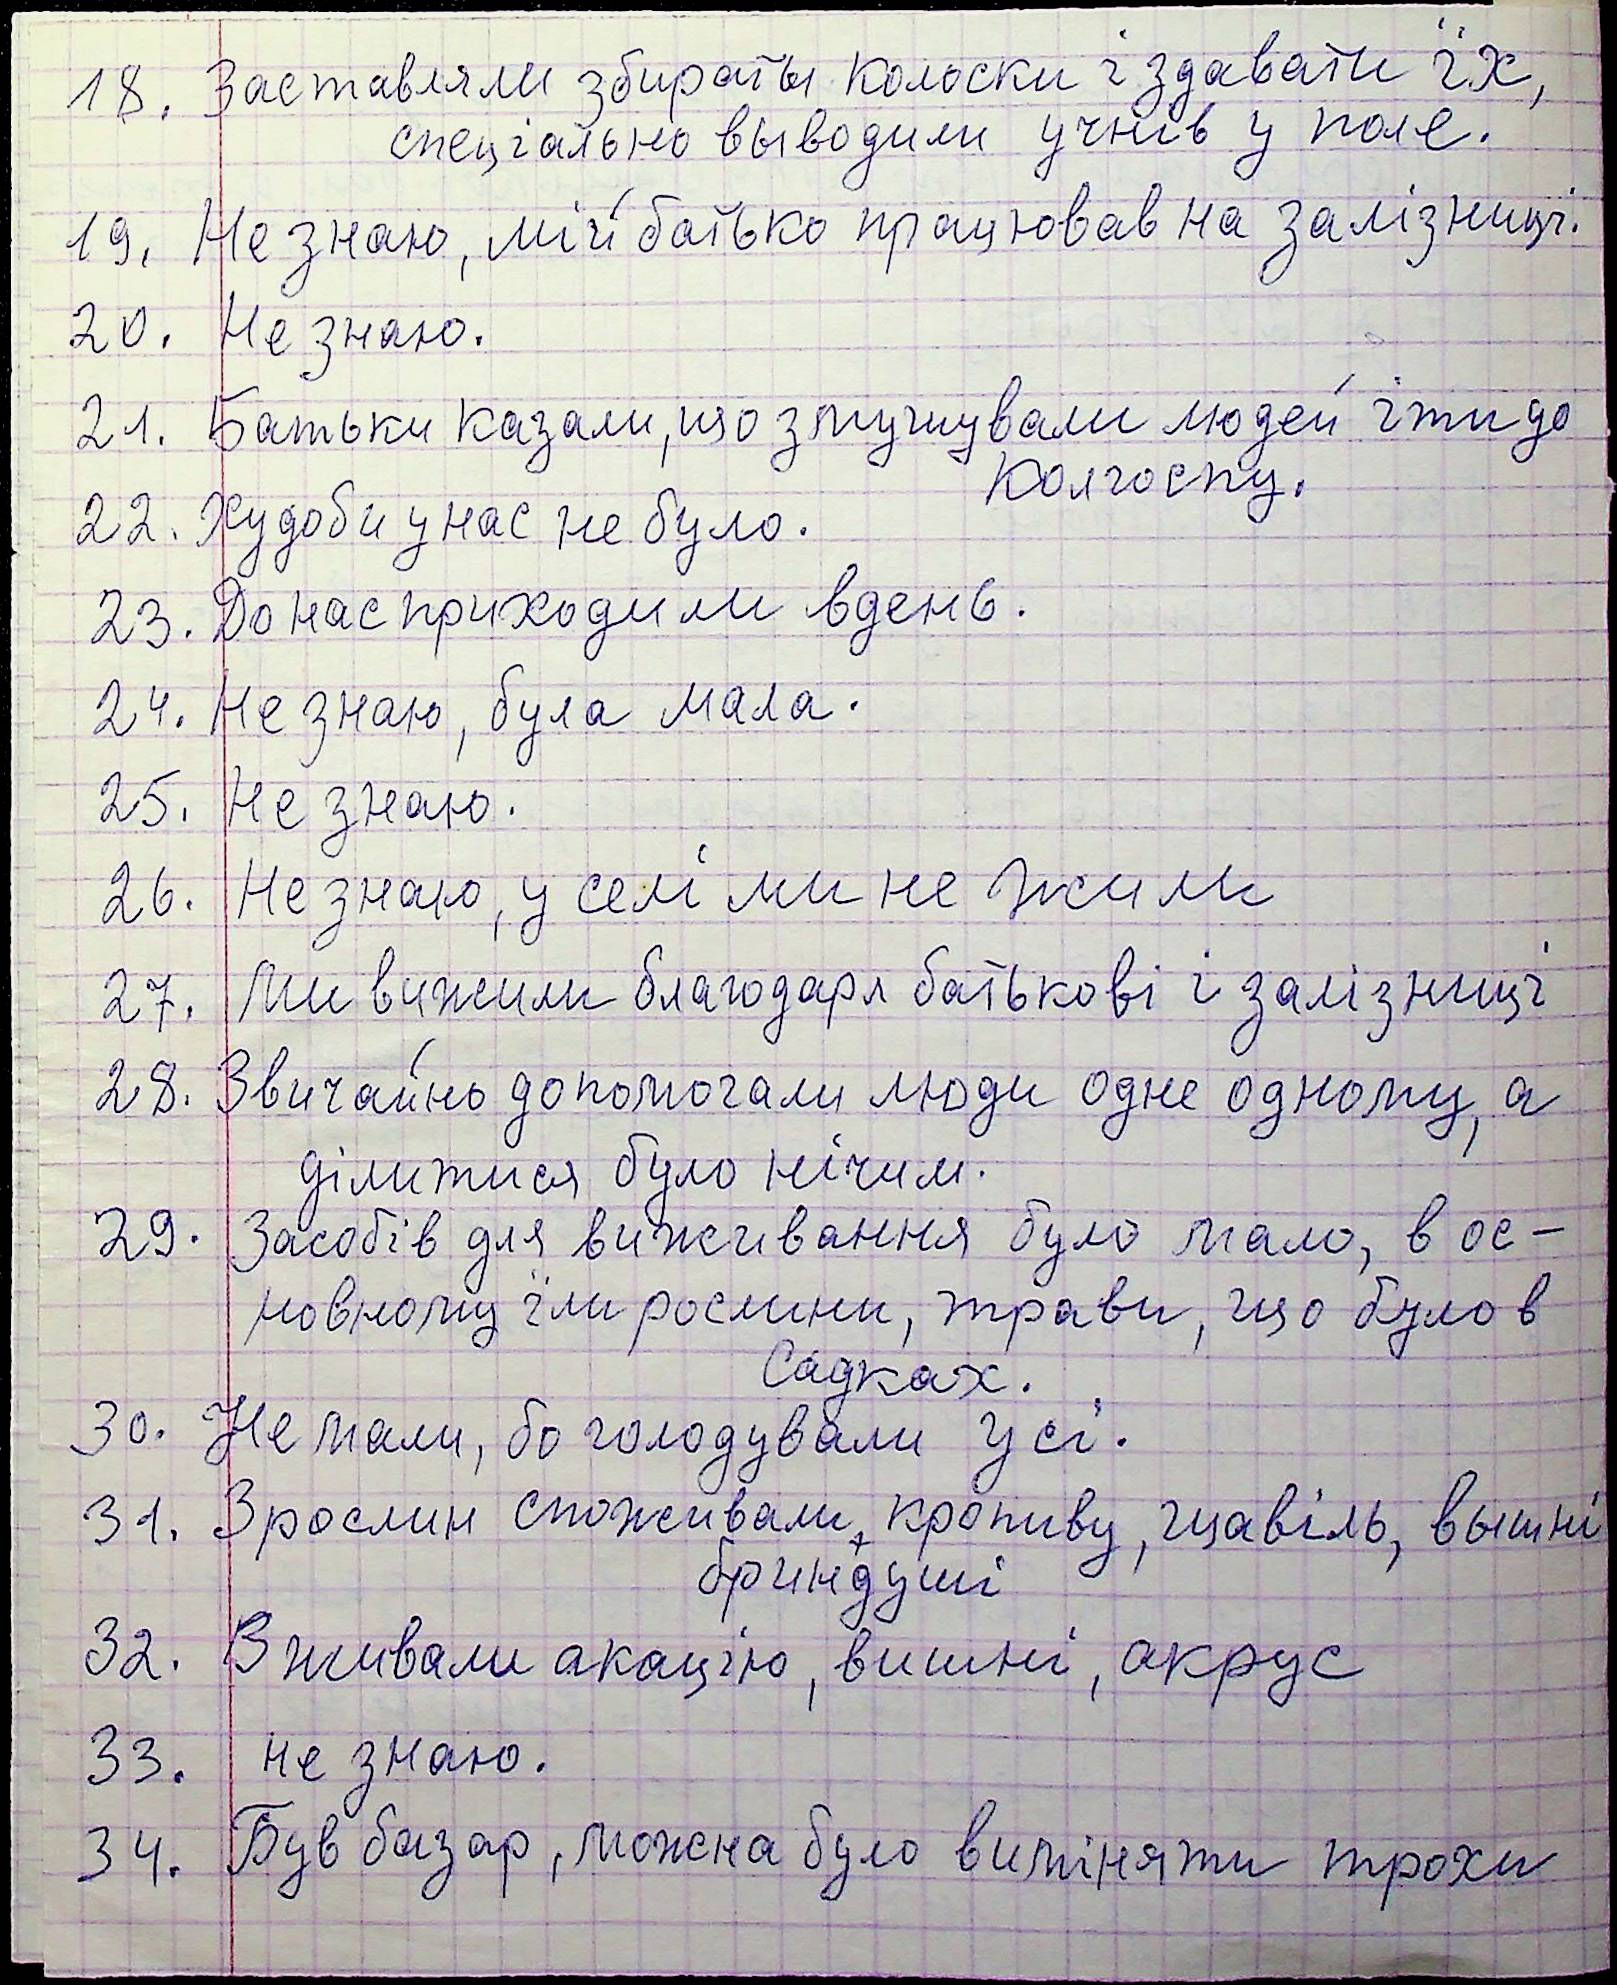 18. Заставляли збираты колоски і здавати їх,
спеціально выводили учнів у поле.
19. Не знаю, мій батько працював на залізниці.
20. Не знаю.
21. Батьки казали, що змушували людей іти до
колгоспу.
22. Худоби у нас не було.
23. До нас приходили вдень.
24. Не знаю, була мала.
25. Не знаю.
26. Не знаю, у селі ми не жили
27. Ми вижили благодаря батькові і залізниці
28. Звичайно допомогали люди одне одному, а
ділитися було нічим.
29. Засобів для виживання було мало, в ос-
новному їли рослини, трави, що було в
садках.
30. Не мали, бо голодували усі.
31. З рослин споживали кропиву, щавіль, вышні
бриндуші
32. Вживали акацію, вишні, акрус
33. не знаю.
34. Був базар, можна було виміняти трохи